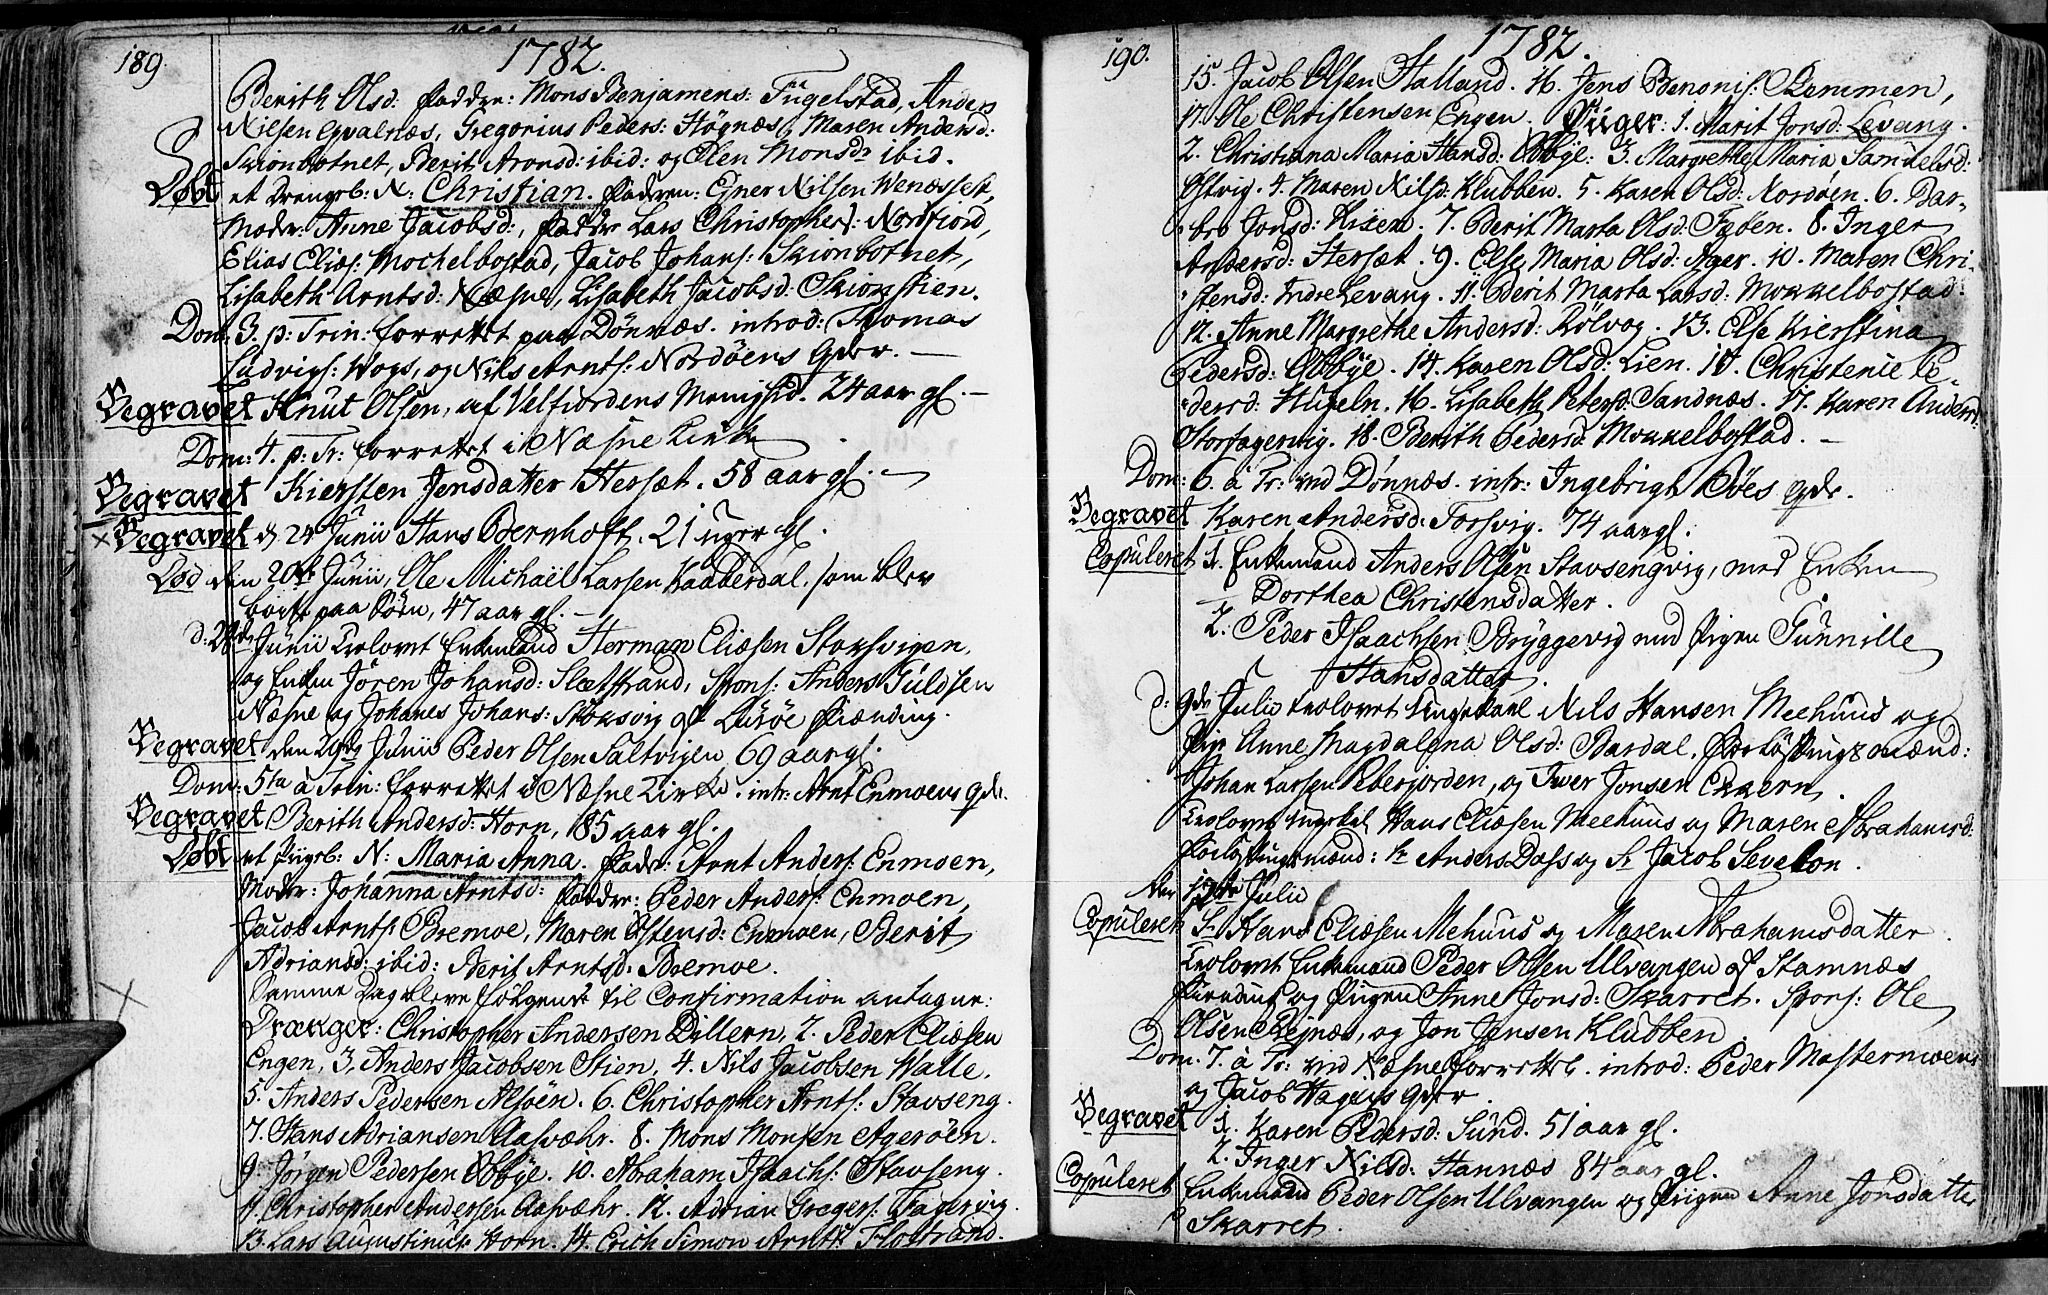 189.
1782.
Berith Olsd: Fadder: Mons Benjamens: Fügelstad, Anders
Nilsen Qvalnæs, Gregorius Peders: Høgnæs, Maren Andersd:
Skionbotnet, Berit Aronsd: ibid: og Elen Monsdr ibid.
Døbt et Drengeb: N: Christian. Faderen: Ejner Nilsen Wenæsset,
Moder: Anne Jacobsd:, Fadder Lars Christophers: Nordfiord,
Elias Elias: Mochelbostad, Jacob Johans: Skionbotnet,
Lisabeth Arntsd: Næsne, Lisabeth Jacobsd: Skionstien.
Dom: 3. p: Trin: forrettet paa Dønnæs. introd: Thomas
Ludvigs: Wogs, og Nils Arnts: Nordøens Qder. —
Begravet Knut Olsen, af Velfiordens Menighd. 24 aar gl. —
Dom: 4. p: Tr: forrettet i Næsne Kirke
Begravet Kiersten Jensdatter Hersæt. 58 aar gl. —
× Begravet d 24 Junii Hans Bernhoft. 21 uger gl.
Død den 20de Junii, Ole Michaël Larsen Kabberdal. som blev
borte paa Søen, 47 aar gl. —
Junii trolovet Enkemand Herman Eliæsen Stoksvigen,
og Enken Jören Johansd: Slettstrand, Spons: Anders Guldsen
Næsne og Johanes Johans: Stoksvig af Lurøe Fierding.
Begravet den 29de Junii Peder Olsen Saltvigen 69 aar gl.
Dom: 5ta à Trin: forrettet i Næsne Kirke. intr: Arnt Enmoens Qde.
Begravet Berith Andersd: Horn, 85 aar gl.
Døbt et Pigeb: N: Maria Anna. Fader: Arnt Anders: Enmoen,
Moder: Johanna Arntsd: Faddre: Peder Anders: Enmoen,
Jacob Arnts: Bremoe, Maren Ostensd: Enmoen, Berit
Adriansd: ibid: Berit Arntsd: Bremoe.
Samme Dag bleve følgende til Confirmation antagne:
Drænger: Christopher Andersen Dillern, 2. Peder Eliæsen
Engen, 3, Anders Jacobsen Stien, 4. Nils Jacobsen Walle.
5. Anders Pedersen Alsöen. 6. Christopher Arnts: Stavseng.
7. Hans Adriansen Aasværr. 8. Mons Monsen Agerøen.
9. Jørgen Pedersen Ebbye. 10. Abraham Isaachs: Stavseng.
11. Christopher Andersen Aasvær. 12. Adrian Gregers: Fagervig.
13. Lars Augustinus: Horn. 14. Erich Simon Arnts: Flostrand.
190.
1782.
15. Jacob Olsen Halland. 16. Jens Benonis: Remmen,
17. Ole Christensen Engen. Piiger: 1. Marit Jonsd: Levang.
2. Christiana Maria Hansd: Ebbye: 3. Margrethe Maria Samuelsd:
Østvig. 4. Maren Nilsd: Klubben. 5. Karen Olsd: Nordøen. 6. Bar-
bro Jonsd: Kisen. 7. Berit Marta Olsd: Søben. 8. Inger
Andersd: Hersæt. 9. Else Maria Olsd: Ager. 10. Maren Chri-
stensd: Indre Levang. 11. Berit Marta Larsd: Mokkelbostad.
12. Anne Margrethe Andersd: Rölvog. 13. Else Kierstina
Pedersd: Ebbye. 14. Karen Olsd: Lien. 15. Christenie Pe-
dersd: Hugeln. 16. Lisabeth Petersd: Sandnæs. 17. Karen Andersd:
Storfagervig. 18. Berith Pedersd: Mokkelbostad. —
Dom: 6. à Tr: ved Dönnæs. intr: Ingebrigt Böes Qde.
Begravet Karen Andersd: Forsvig. 74 aar gl.
Copuleret 1. Enkemand Anders Olsen Stavsengvig, med Enken
Dorthea Christensdatter.
2. Peder Isaachsen Bryggevig med Pigen Gunnille
Hansdatter.
d: 9de Julii trolovet Ungekarl Nils Hansen Meehuus og
Pige Anne Magdalena Olsd: Bardal. Forløftningsmænd:
Johan Larsen Peterjorden, og Iwer Jonsen Ekkern.
Trolovet Ungekarl Hans Eliæsen Meehuus og Maren Abrahamsd:
Forløftningsmænd: Sr Anders Dass og Sr Jacob Sevelon.
den 17de Julii
Copuleret Sr Hans Eliæsen Mehuus og Maren Abrahamsdatter.
Trolovet Enkemand Peder Olsen Ulvangen af Stamnæs
Fierding og Pigen Anne Jonsd: Skarret. Spons: Ole
Olsen Reinæs, og Jon Jensen Klubben.
Dom. 7. à Tr: ved Næsne forrettet. introd: Peder Mastermoens
og Jacob Hagens Qder.
Begravet 1. Karen Pedersd: Sund. 51 aar gl.
2. Inger Nilsd: Hannæs 84 aar gl.
Copuleret Enkemand Peder Olsen Ulvangen og Pigen Anne Jonsdatter
Skarret.